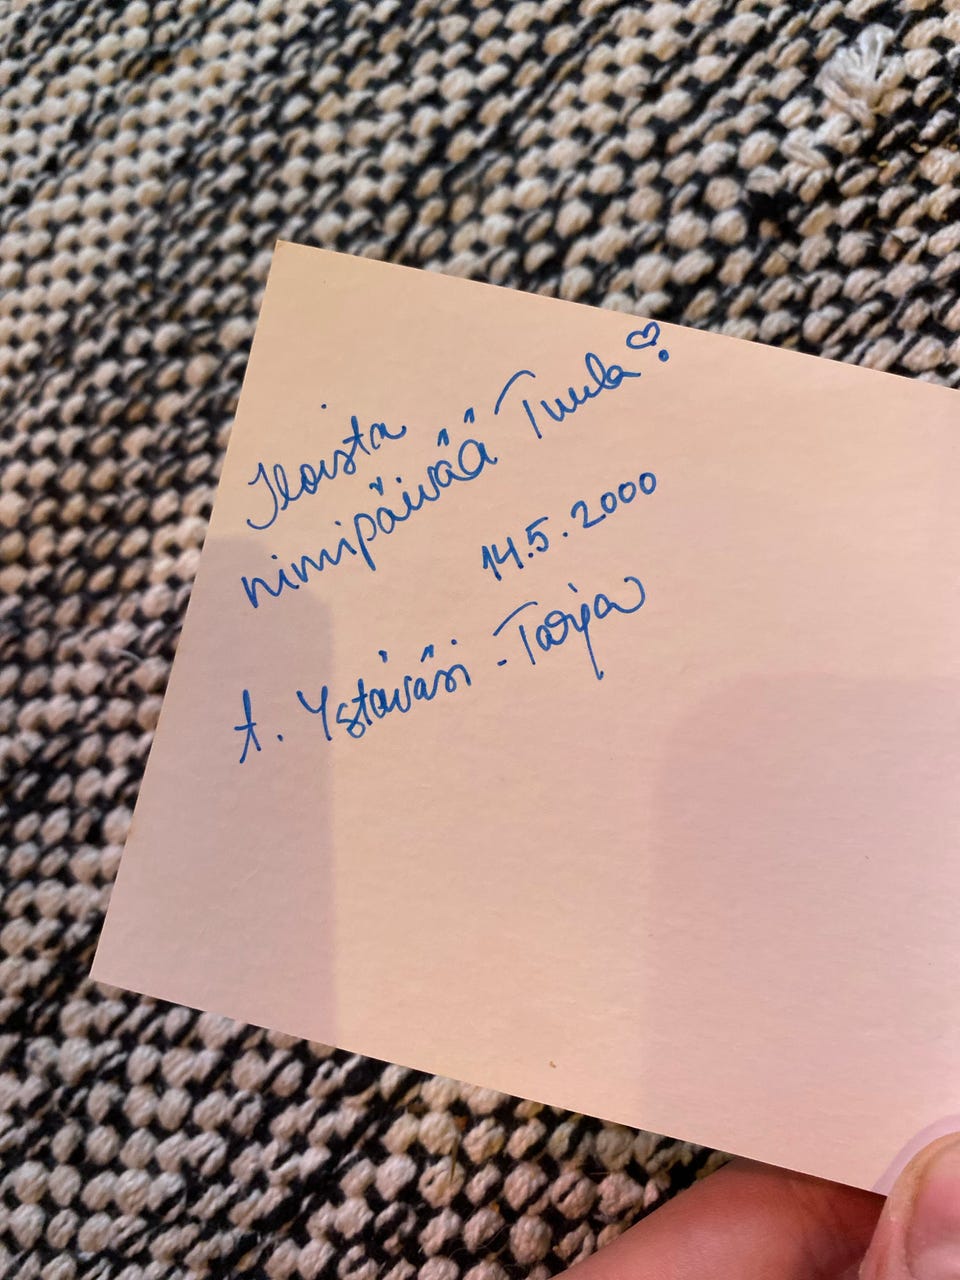 Iloista
nimipäivää Tuula!
14.5.2000
t. Ystäväsi - Tarja